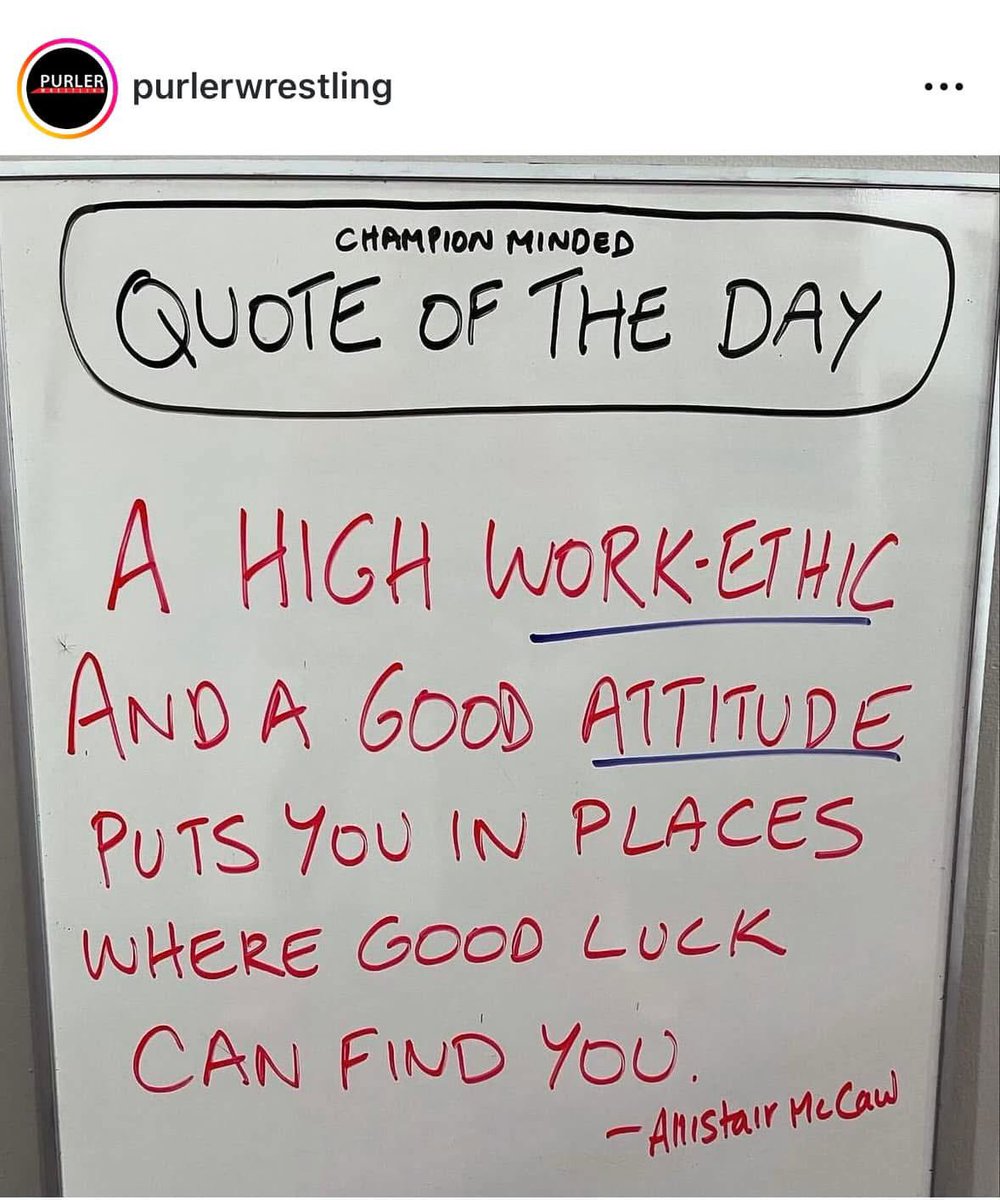 PURLER
WRESTLING
purlerwrestling
CHAMPION MINDED
QUOTE OF THE DAY
A HIGH WORK-ETHIC
AND A GOOD ATTITUDE
PUTS YOU IN PLACES
WHERE GOOD LUCK
CAN FIND YOU.
- Allistair McCaw